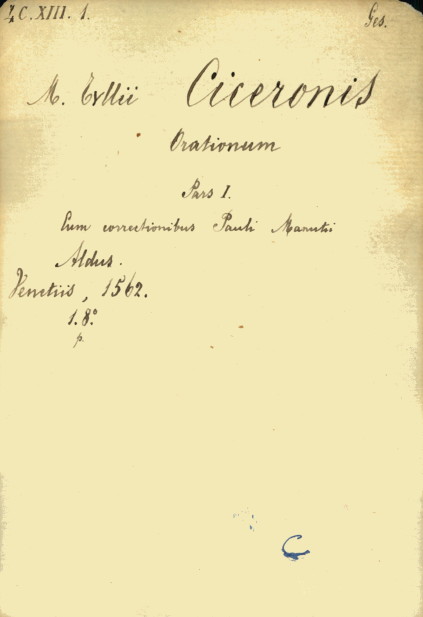 Z.C.XIII. 1. Ges.
M. Tullii Ciceronis
Orationum
Pars I.
Cum correctionibus Pauli Manutii
Aldus.
Venetiis, 1562.
1. 8.°
p.
C